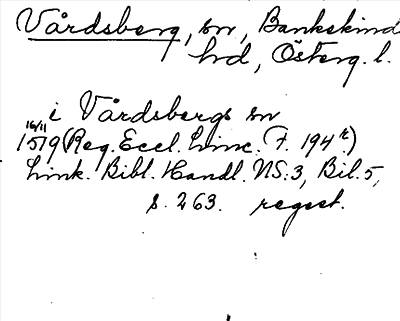 Vårdsberg, sn, Bankekind
hd, Österg. l.
i Vårdsbergs sn
16/11
1579 (Reg. Eccl. Linc. F. 194 r.)
Link. Bibl. Handl. NS:3, Bil. 5,
s. 263. regest.